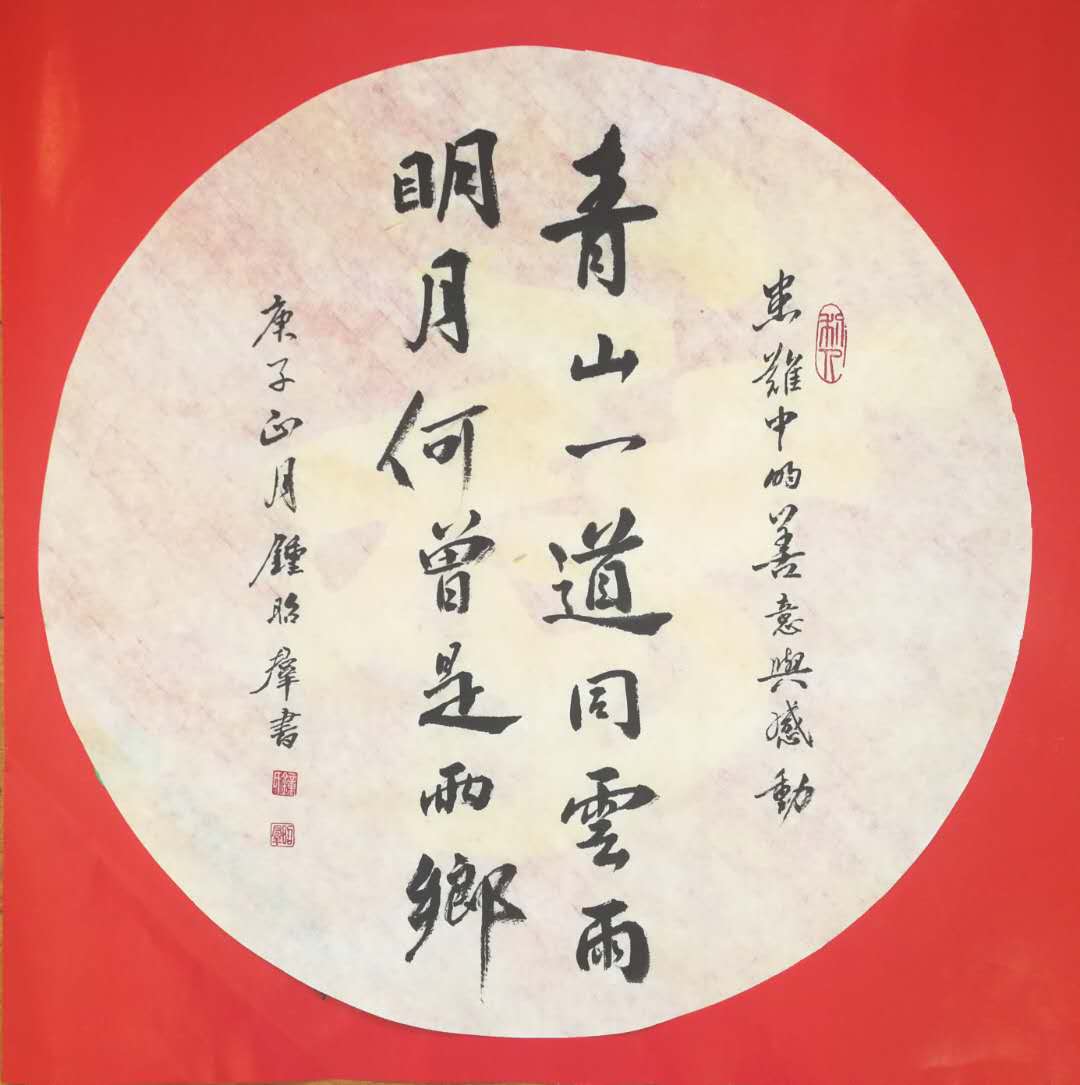 患難中的善意與感動
青山一道同雲雨
明月何曾是兩鄉
庚子正月鍾昭羣書